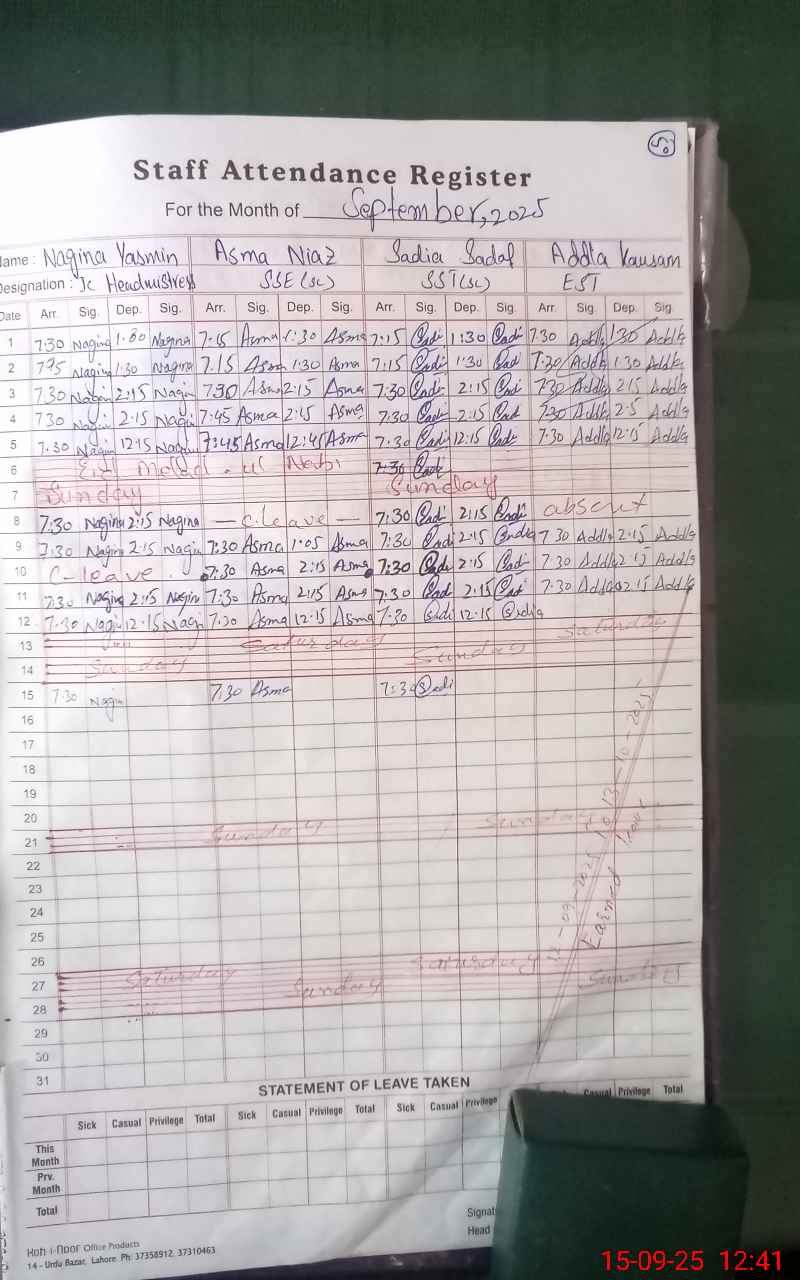 50
Staff Attendance Register
For the Month of September, 2025
Name : Nagina Yasmin Asma Niaz Sadia Sadaf Addla Kausam
Designation : Ic Headmistress SSE (SC) SST (SC) EST
Date Arr. Sig. Dep. Sig. Arr. Sig. Dep. Sig. Arr. Sig. Dep. Sig. Arr. Sig. Dep. Sig.
1 7:30 Nagina 1:30 Nagina 7:15 Asma 1:30 Asma 7:15 Sadi 1:30 Sadi 7:30 Addla 1:30 Addla
2 Nagin 1:30 Nagina 7.15 Asma 1:30 Asma 7:15 Sadi 1:30 Sadi 7:30 Addla 1:30 Addla
3 7.30 Nagin 2:15 Nagin 7:30 Asma 2:15 Asma 7:30 Sadi 2:15 Sadi 7:30 Addla 2:15 Addla
4 7:30 Nagin 2:15 Nagin 7:45 Asma 2:15 Asma 7:30 Sadi 2:15 Sadi 7:30 Addla Addla
5 7.30 Nagin 12:15 Nagin 7:45 Asma 12:45 Asma 7:30 Sadi 12:15 Sadi 7:30 Addla 12:15 Addla
6 Eid Malad . ul Nabi 7:30 Sadi
7 Sunday Sunday
8 7:30 Nagina 2:15 Nagina — C.leave — 7:30 Sadi 2:15 Sadi absent
9 7:30 Nagina 2:15 Nagin 7:30 Asma 1:05 Asma 7:30 Sadi 2:15 Sadia 7:30 Addla 2:15 Addla
10 C-leave . 7:30 Asma 2:15 Asma 7:30 Sadi 2:15 Sadi 7:30 Addla 2:15 Addla
11 7:30 Nagina 2:15 Nagin 7:30 Asma 2:15 Asma 7:30 Sadi 2:15 Sadi 7:30 Addla 2:15 Addla
12 7:30 Nagin 12:15 Nagin 7:30 Asma 12:15 Asma 7:30 Sadi 12:15 Sadia
13 Saturday Saturday
14 Sunday Sunday
15 7:30 Nagin 7:30 Asma 7:30 Sadi
16
17
18
19
20
21 Sunday Sunday
22
23
24
25
26
27 Saturday Saturday
28 Sunday Sunday
29
30
31
12-09-2025 to 13-10-2025
Earned leave
STATEMENT OF LEAVE TAKEN
Sick Casual Privilege Total Sick Casual Privilege Total Sick Casual Privilege Casual Privilege Total
This Month
Prv. Month
Total
Signat
Head
Koh-i-noor Office Products
14 - Urdu Bazar, Lahore. Ph: 37358912, 37310463
15-09-25 12:41